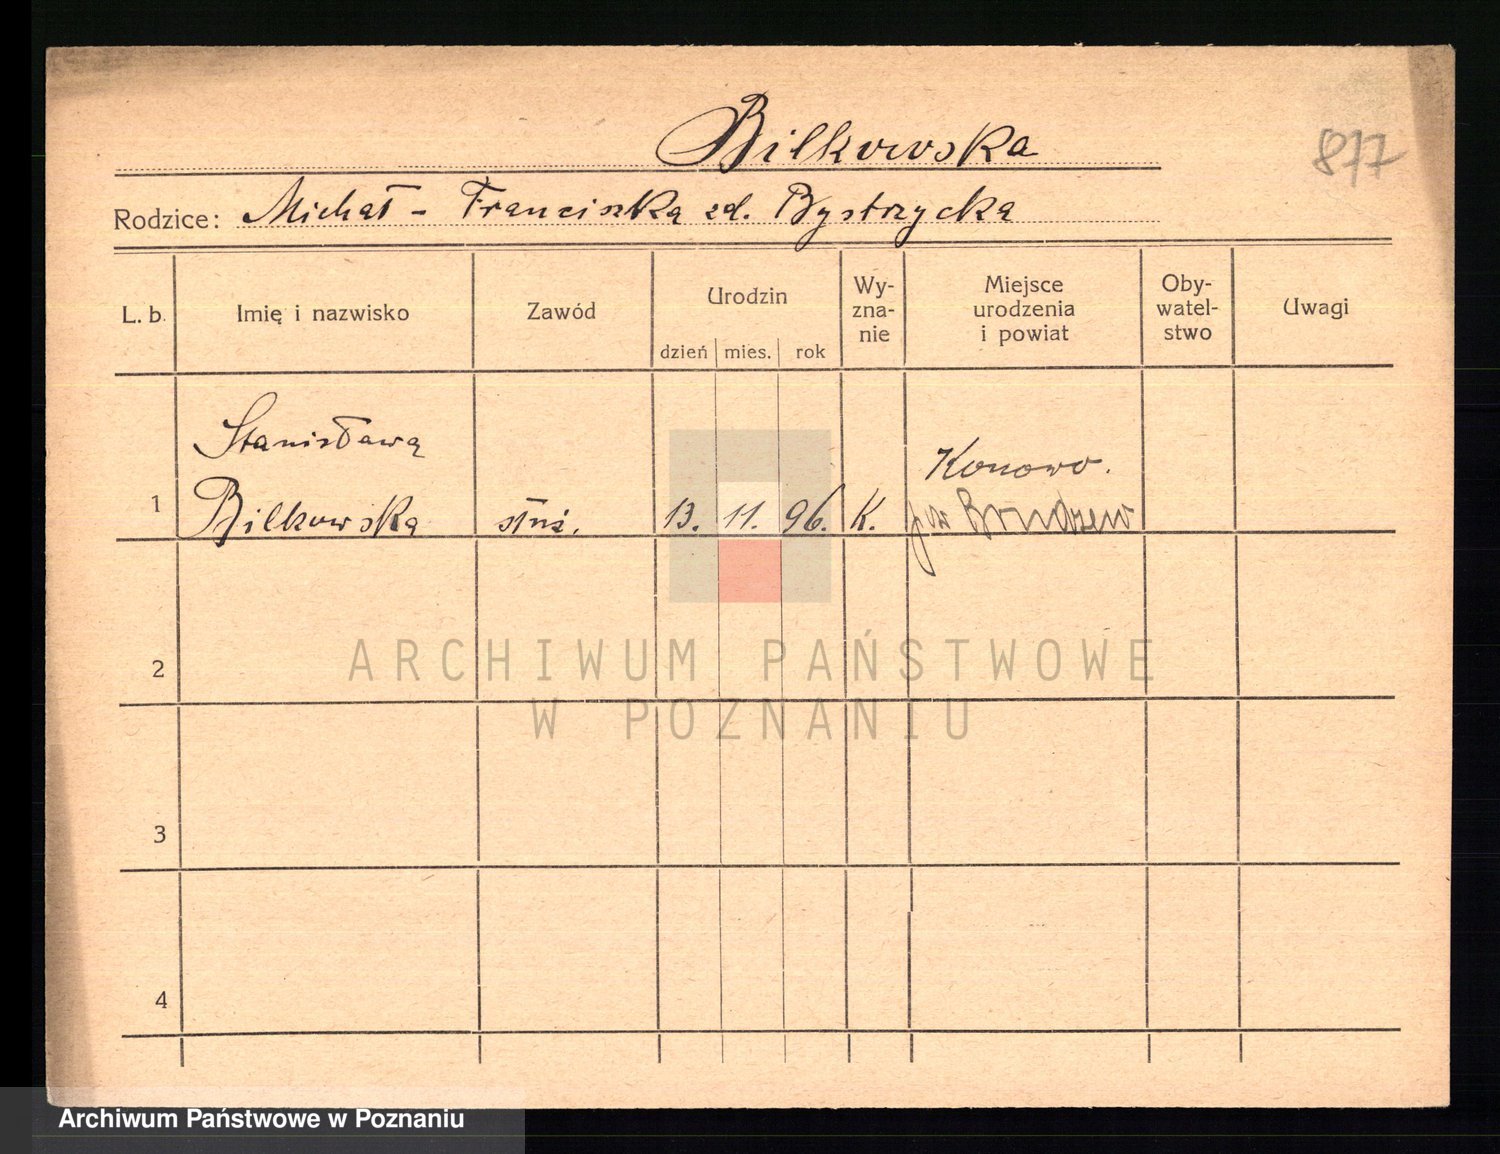 Bilkowska
877
Rodzice: Michał - Franciszka zd. Bystrzycka
L. b.
Imię i nazwisko
Zawód
Urodzin
dzień mies. rok
Wy-
zna-
nie
Miejsce
urodzenia
i powiat
Oby-
watel-
stwo
Uwagi
Stanisława
Konowo.
1 Bilkowska służ. 13. 11. 96. K.
2
3
4
ARCHIWUM PAŃSTWOWE
W POZNANIU
Archiwum Państwowe w Poznaniu